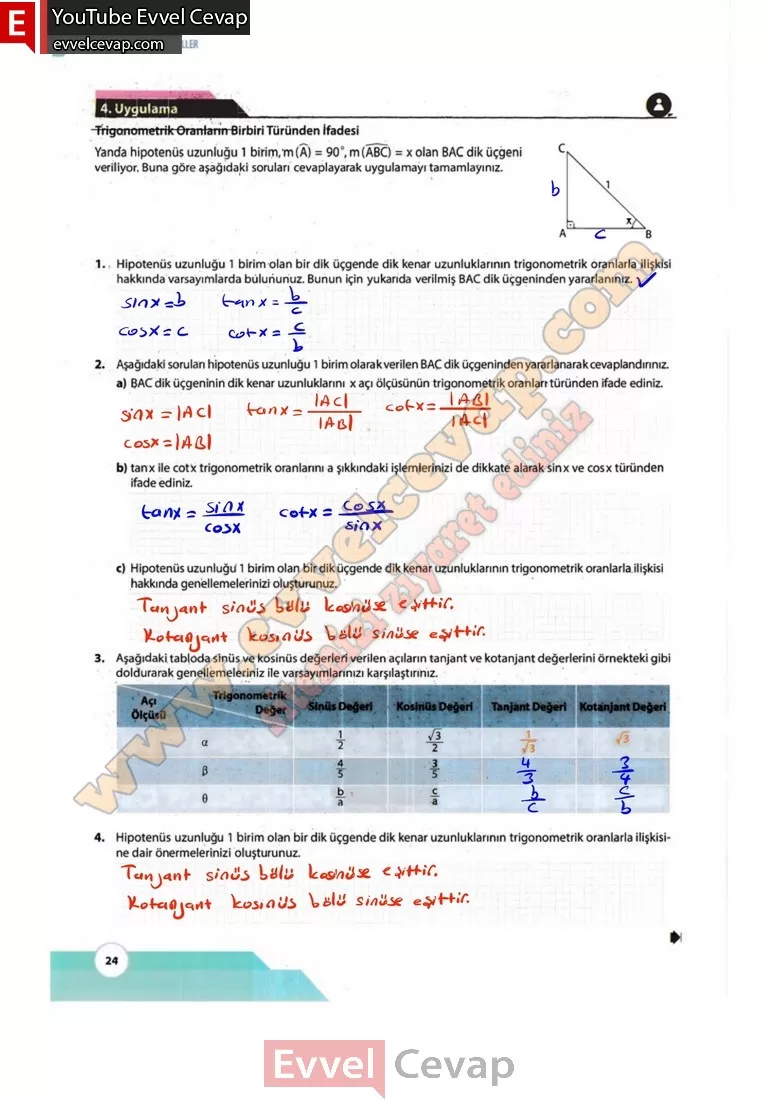 E YouTube Evvel Cevap
evvelcevap.com LLER
4. Uygulama
Trigonometrik Oranların Birbiri Türünden İfadesi
Yanda hipotenüs uzunluğu 1 birim, m(Â) = 90°, m(ABC) = x olan BAC dik üçgeni
veriliyor. Buna göre aşağıdaki soruları cevaplayarak uygulamayı tamamlayınız.
C
b 1
x
A c B
1. Hipotenüs uzunluğu 1 birim olan bir dik üçgende dik kenar uzunluklarının trigonometrik oranlarla ilişkisi
hakkında varsayımlarda bulununuz. Bunun için yukarıda verilmiş BAC dik üçgeninden yararlanınız. ✓
sinx = b tanx = b/c
cosx = c cotx = c/b
2. Aşağıdaki soruları hipotenüs uzunluğu 1 birim olarak verilen BAC dik üçgeninden yararlanarak cevaplandırınız.
a) BAC dik üçgeninin dik kenar uzunluklarını x açı ölçüsünün trigonometrik oranları türünden ifade ediniz.
sinx = |AC| tanx = |AC|/|AB| cotx = |AB|/|AC|
cosx = |AB|
b) tanx ile cotx trigonometrik oranlarını a şıkkındaki işlemlerinizi de dikkate alarak sinx ve cosx türünden
ifade ediniz.
tanx = sinx/cosx cotx = cosx/sinx
c) Hipotenüs uzunluğu 1 birim olan bir dik üçgende dik kenar uzunluklarının trigonometrik oranlarla ilişkisi
hakkında genellemelerinizi oluşturunuz.
Tanjant sinüs bölü kosinüse eşittir.
Kotanjant kosinüs bölü sinüse eşittir.
3. Aşağıdaki tabloda sinüs ve kosinüs değerleri verilen açıların tanjant ve kotanjant değerlerini örnekteki gibi
doldurarak genellemeleriniz ile varsayımlarınızı karşılaştırınız.
Açı Ölçüsü Trigonometrik Değer Sinüs Değeri Kosinüs Değeri Tanjant Değeri Kotanjant Değeri
α 1/2 √3/2 1/√3 √3
β 4/5 3/5 4/3 3/4
θ b/a c/a b/c c/b
4. Hipotenüs uzunluğu 1 birim olan bir dik üçgende dik kenar uzunluklarının trigonometrik oranlarla ilişkisi-
ne dair önermelerinizi oluşturunuz.
Tanjant sinüs bölü kosinüse eşittir.
Kotanjant kosinüs bölü sinüse eşittir.
24
www.evvelcevap.com
sitemizi ziyaret ediniz
Evvel Cevap